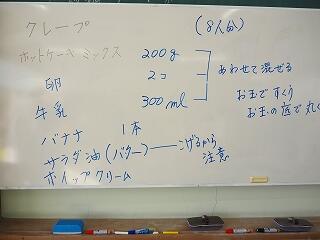 クレープ (8人分)
ホットケーキミックス 200g
卵 2コ あわせて混ぜる
牛乳 300ml お玉ですくう
お玉の底で丸く
バナナ 1本
サラダ油(バター) こげるから
注意
ホイップクリーム